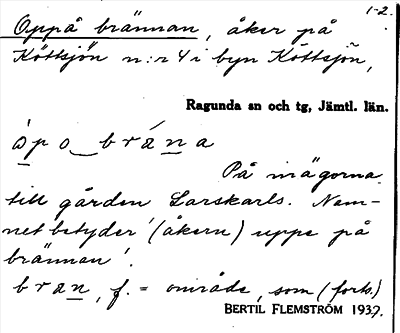 1-2.
Oppå brännan, åker på
Köttsjön n:r 4 i byn Köttsjön,
Ragunda sn och tg, Jämtl. län.
åpo bräna
På inägorna
till gården Larskarls. Nam-
net betyder '(åkern) uppe på
brännan'.
bran, f. = område, som (forts.)
BERTIL FLEMSTRÖM 1937.